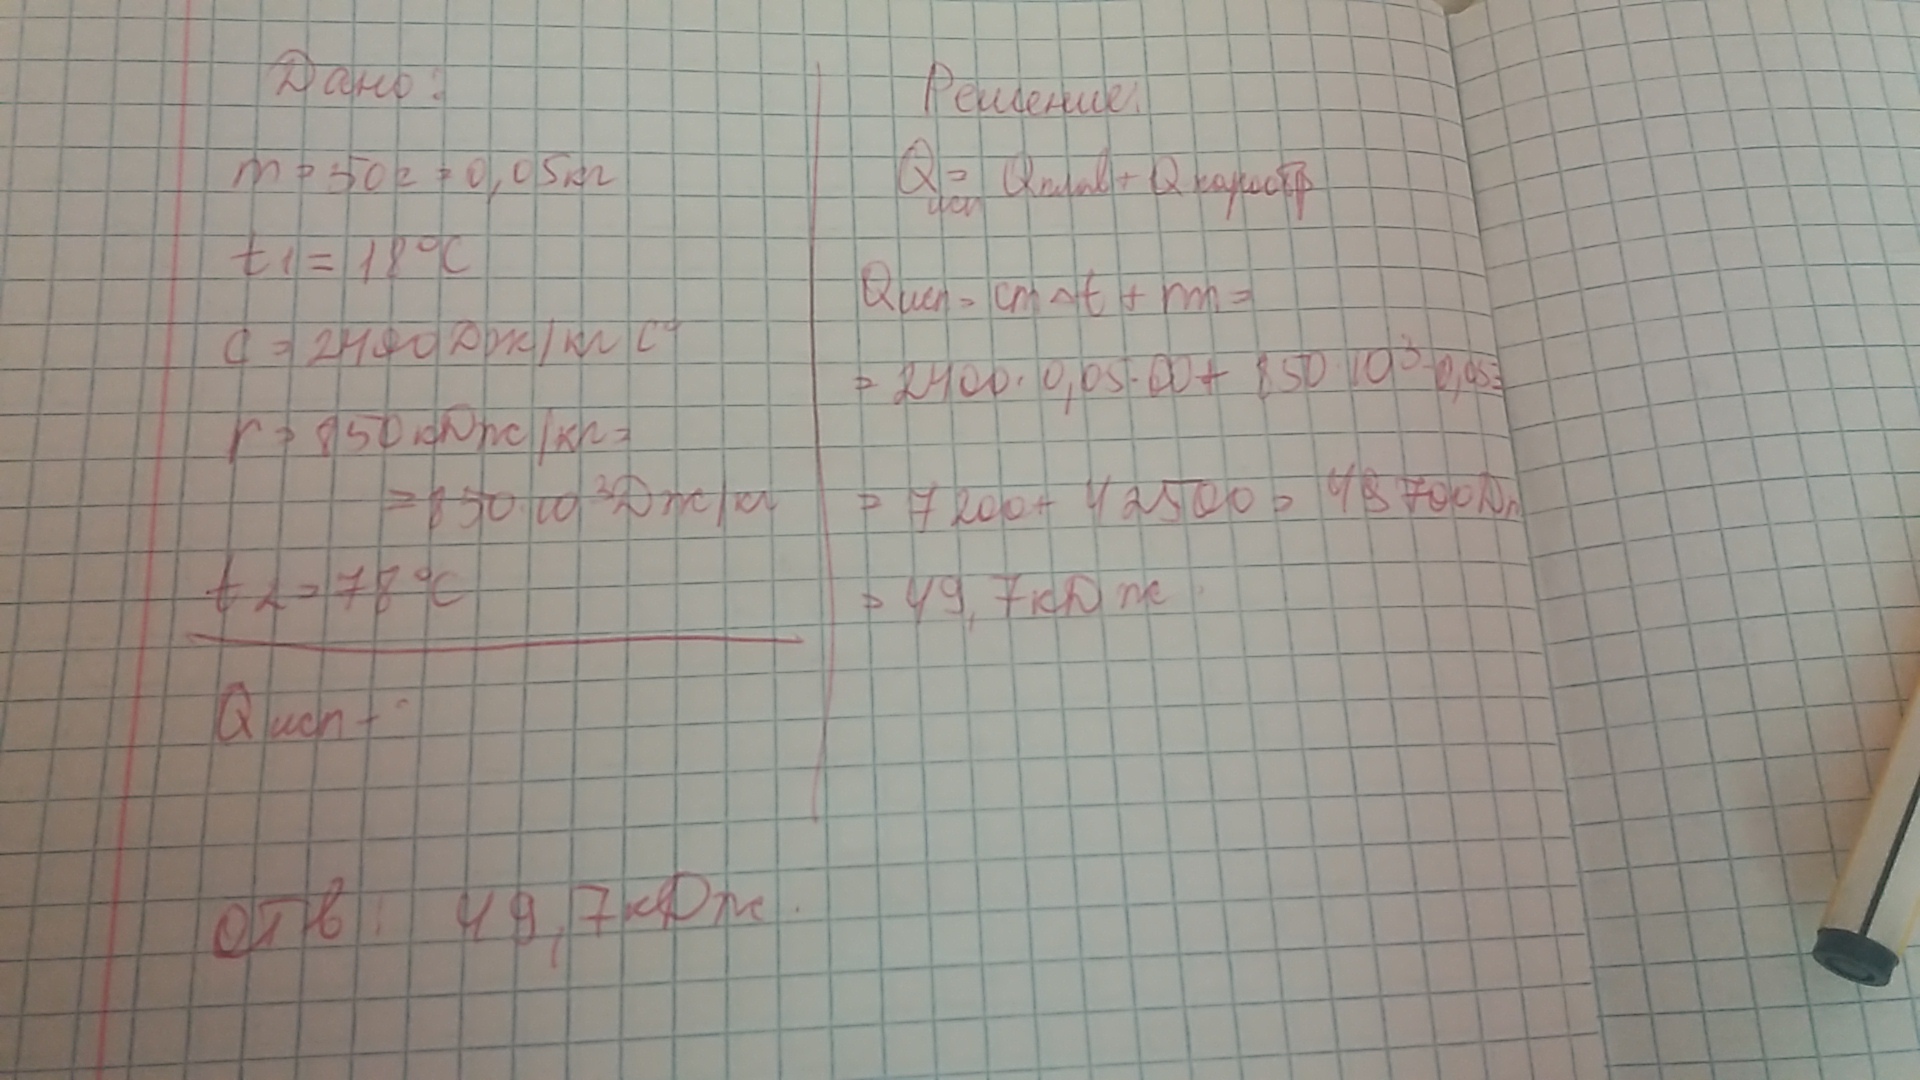 Дано:
m = 50г = 0,05кг
t1 = 18°C
c = 2400 Дж/кг C°
r = 850 кДж/кг =
= 850·10³ Дж/кг
t2 = 78°C
Qисп - ?
Решение:
Q исп = Q + Q
Qисп = cm∆t + rm =
= 2400·0,05·60 + 850·10³·0,05=
= 7200 + 42500 = 49700 Дж
= 49,7кДж
отв: 49,7кДж.